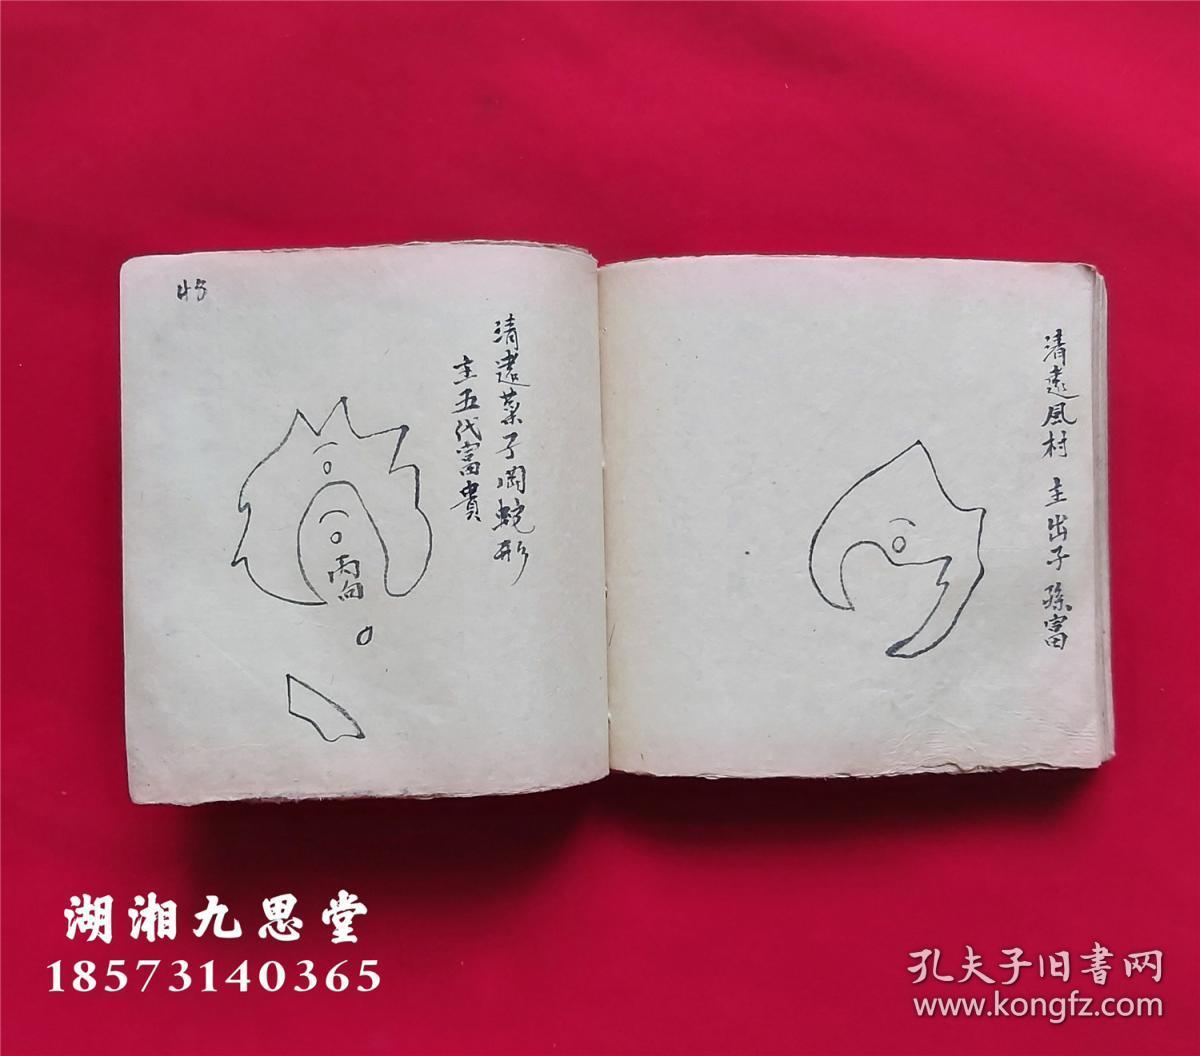 清遠風村 主出子孫富
45
清遠菓子岡蛇形
主五代富貴
丙向
湖湘九思堂
18573140365
孔夫子旧書网
www.kongfz.com